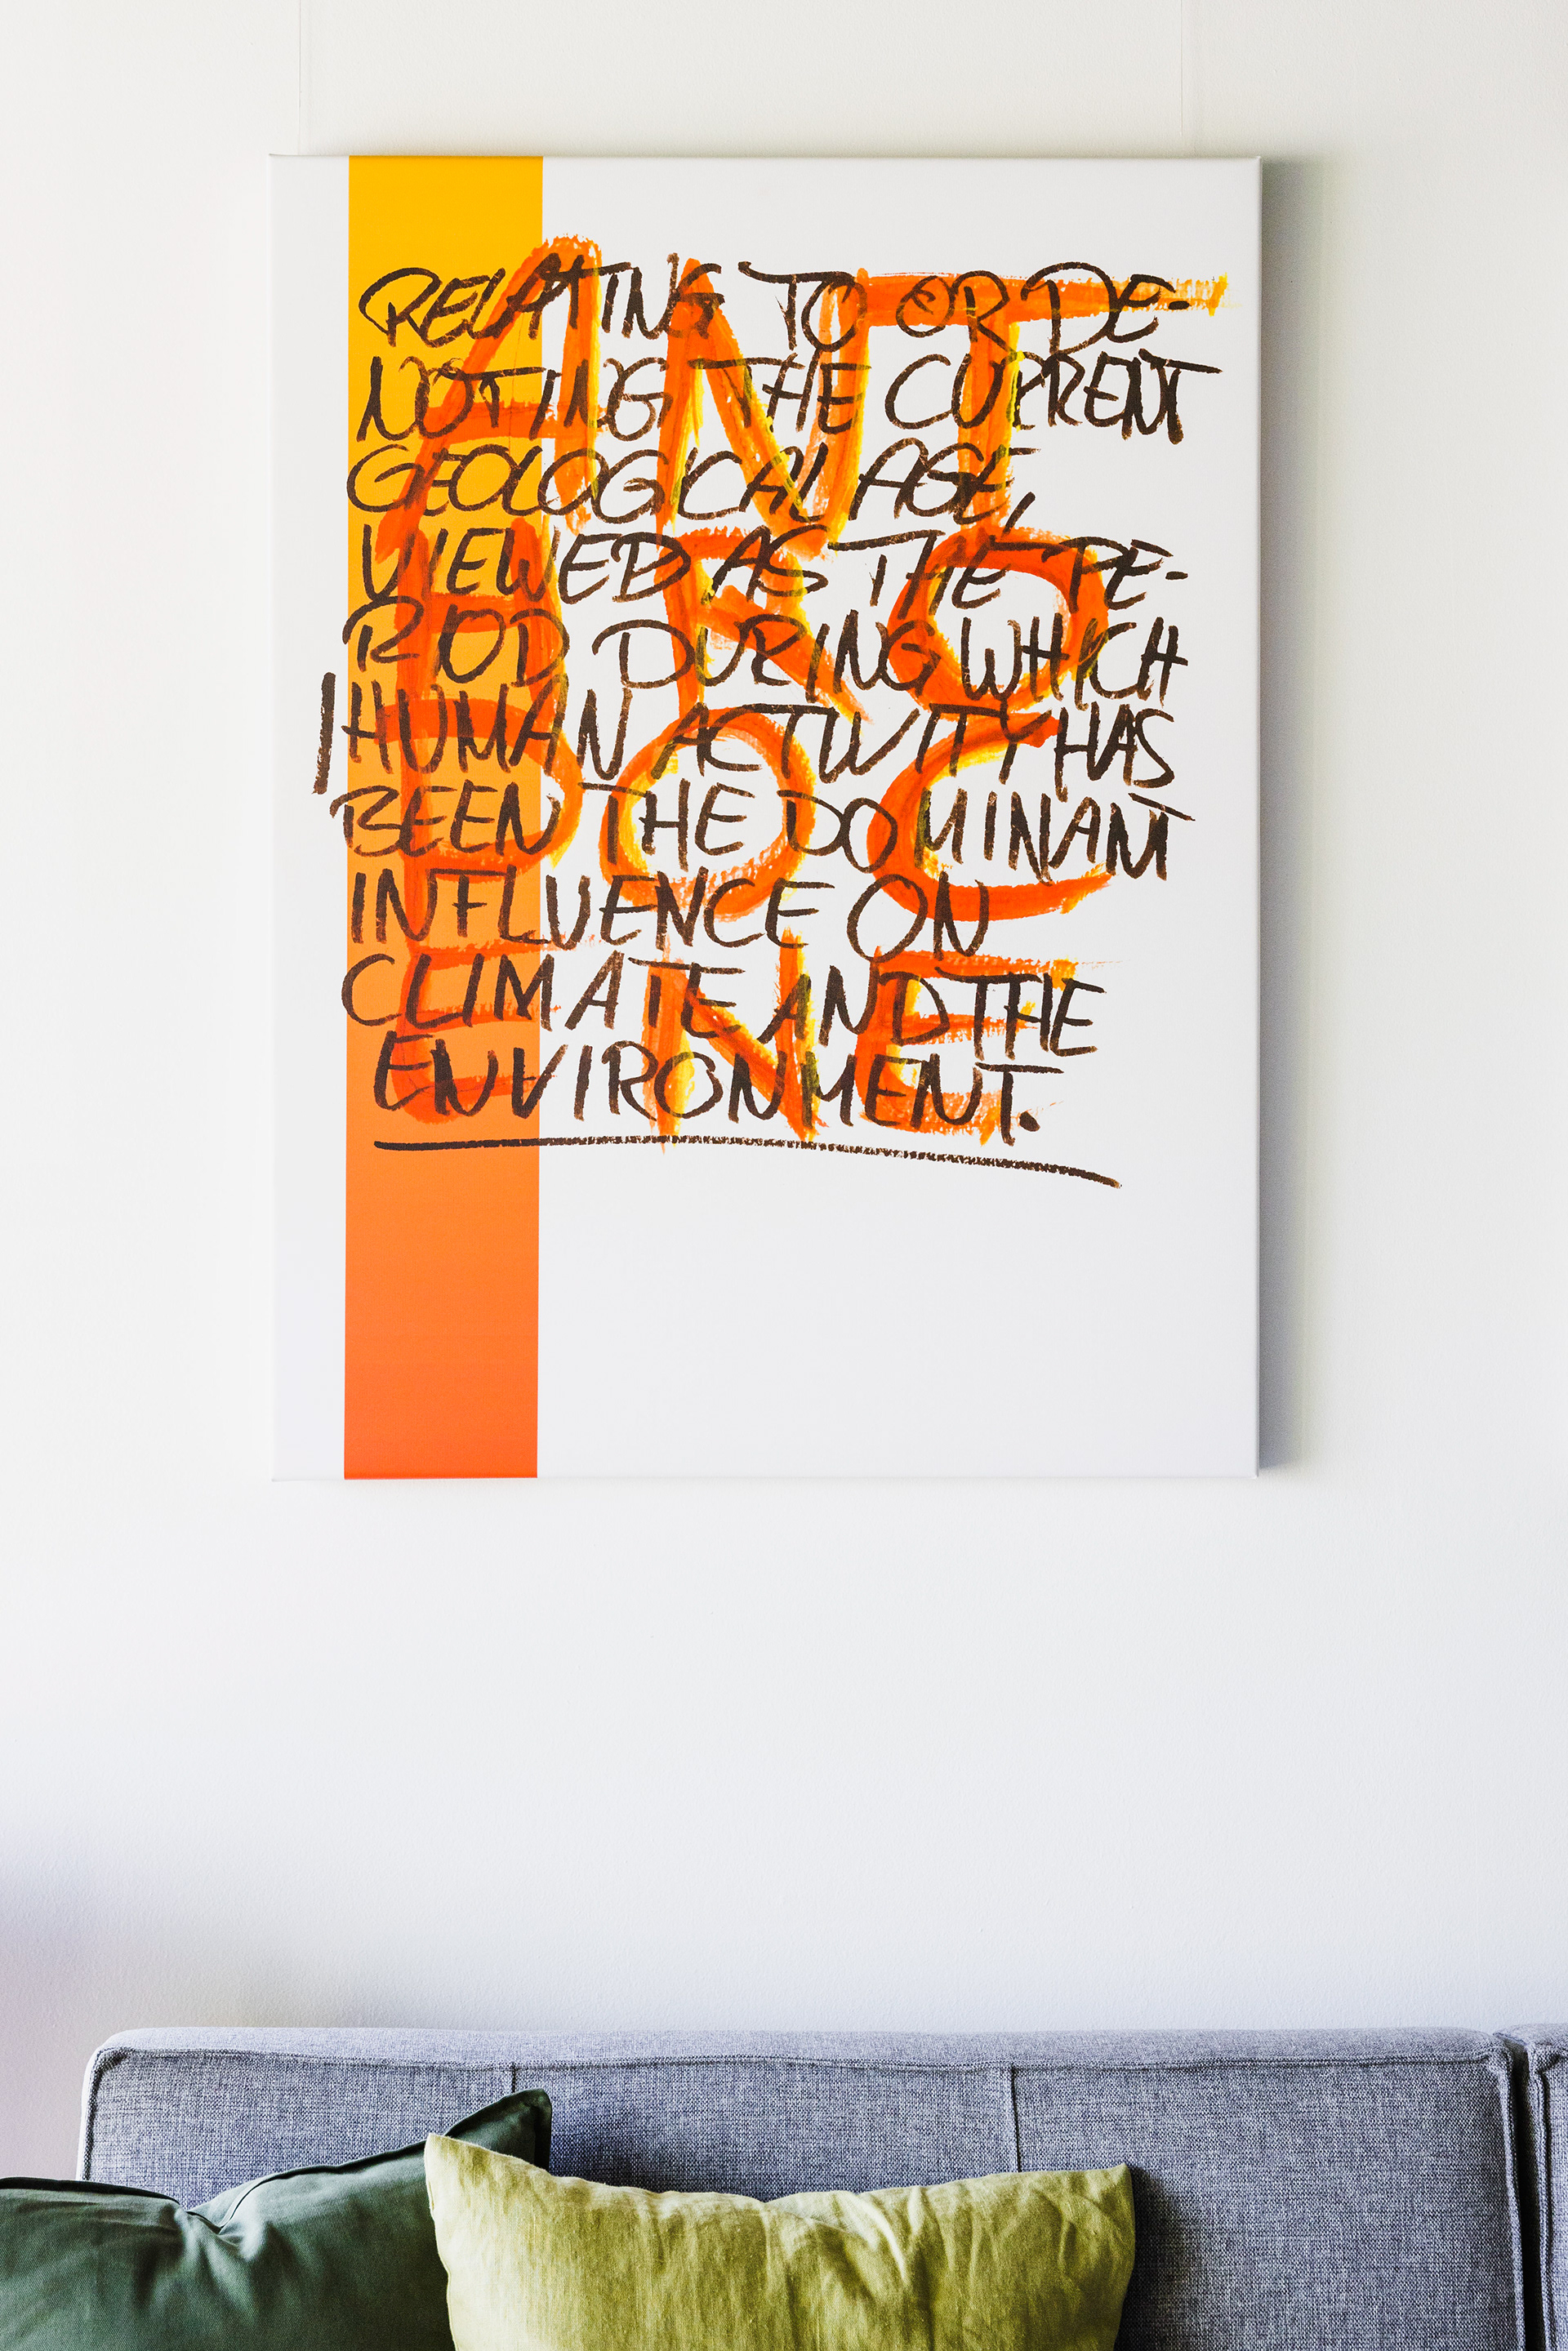 ANT
HRO
POC
ENE
RELATING TO OR DE-
NOTING THE CURRENT
GEOLOGICAL AGE,
VIEWED AS THE PE-
RIOD DURING WHICH
HUMAN ACTIVITY HAS
BEEN THE DOMINANT
INFLUENCE ON
CLIMATE AND THE
ENVIRONMENT.